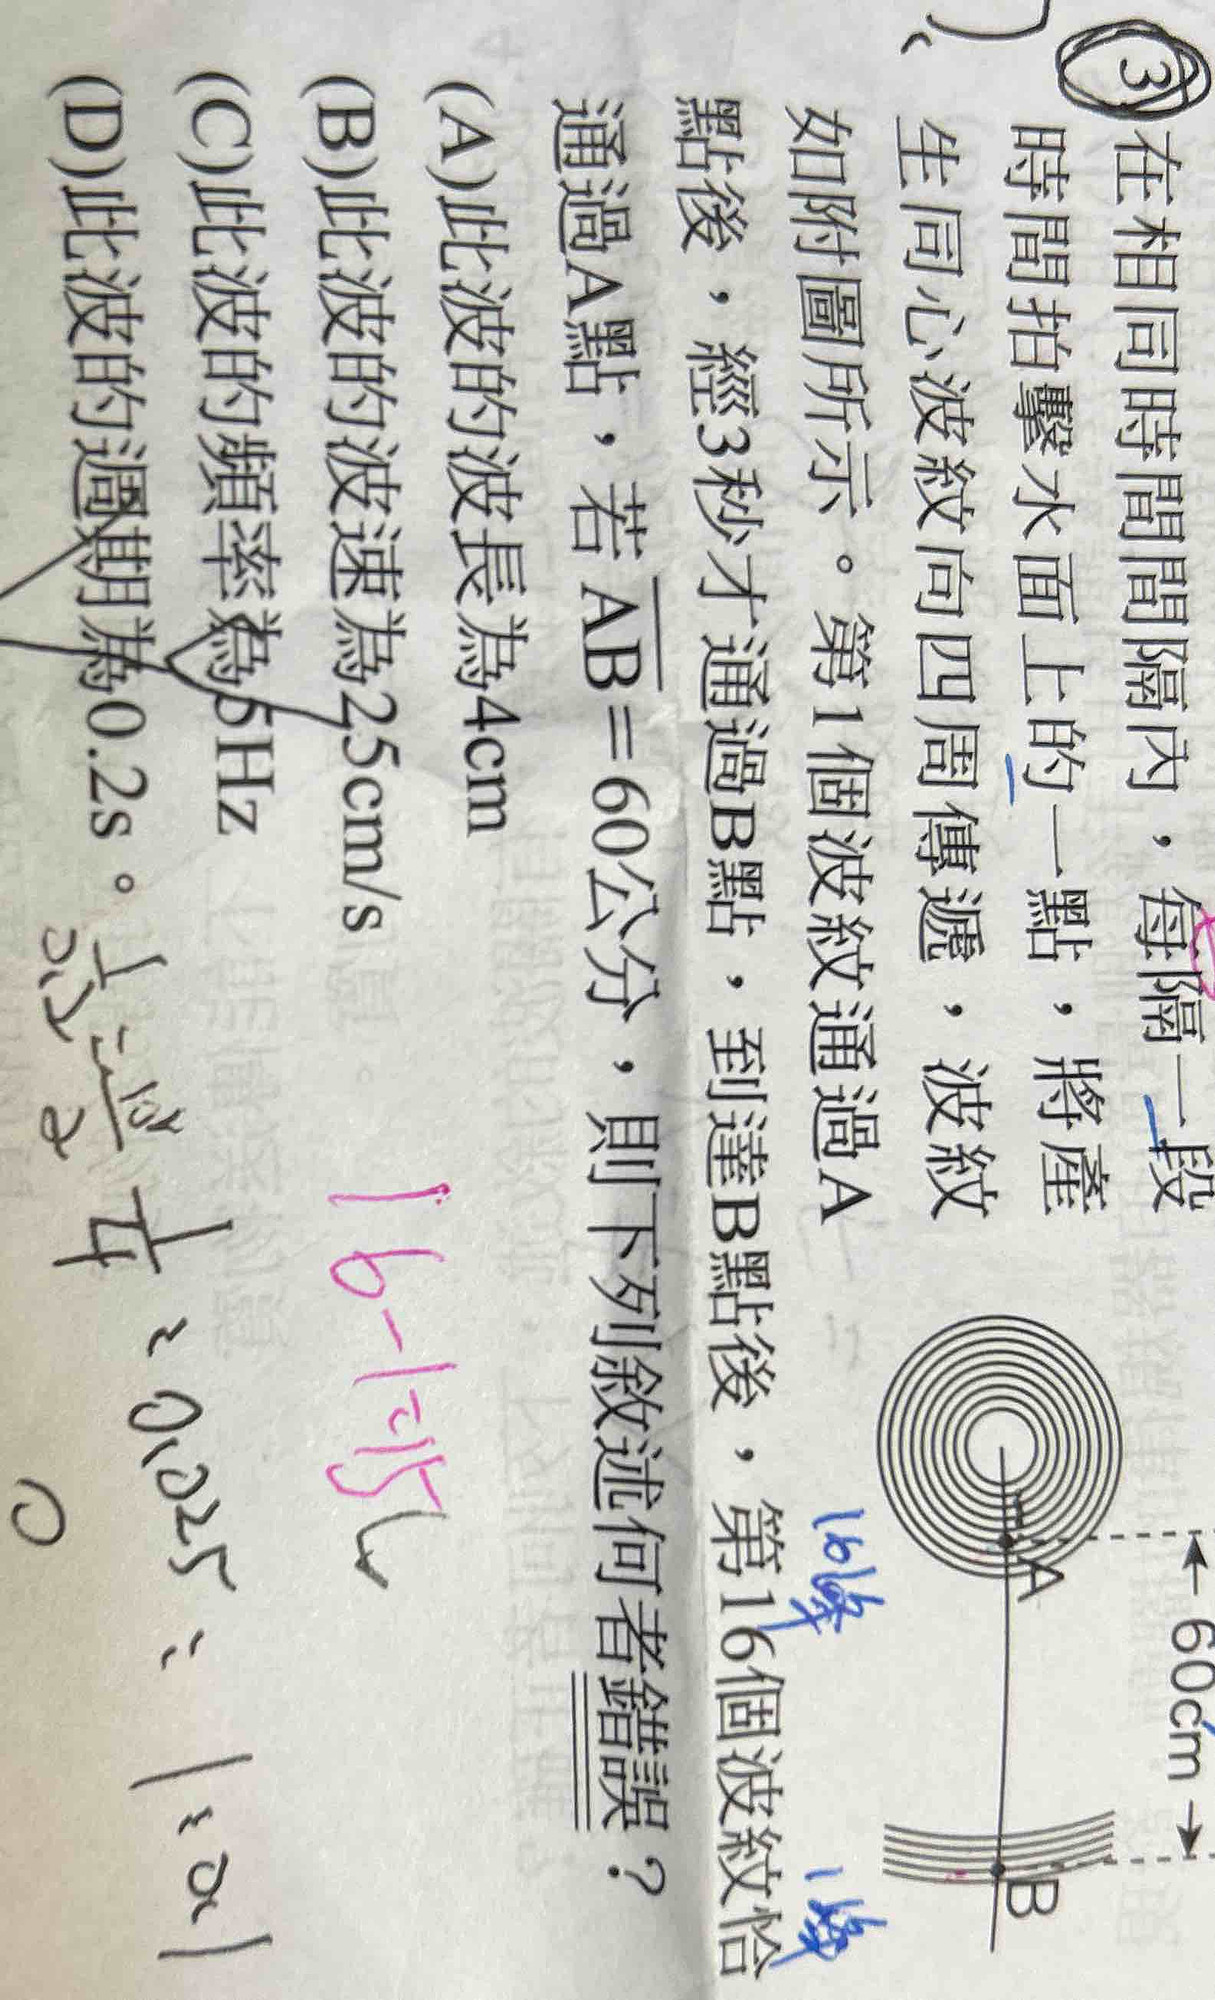 3 在相同時間間隔內，每隔一段
時間拍擊水面上的一點，將產
生同心波紋向四周傳遞，波紋
如附圖所示。第1個波紋通過A
點後，經3秒才通過B點，到達B點後，第16個波紋恰
通過A點，若AB=60公分，則下列敘述何者錯誤？
(A)此波的波長為4cm
(B)此波的波速為25cm/s
(C)此波的頻率為5Hz
(D)此波的週期為0.2s。
←60cm→
A
B
16峰
1峰
16-1=15
0.025